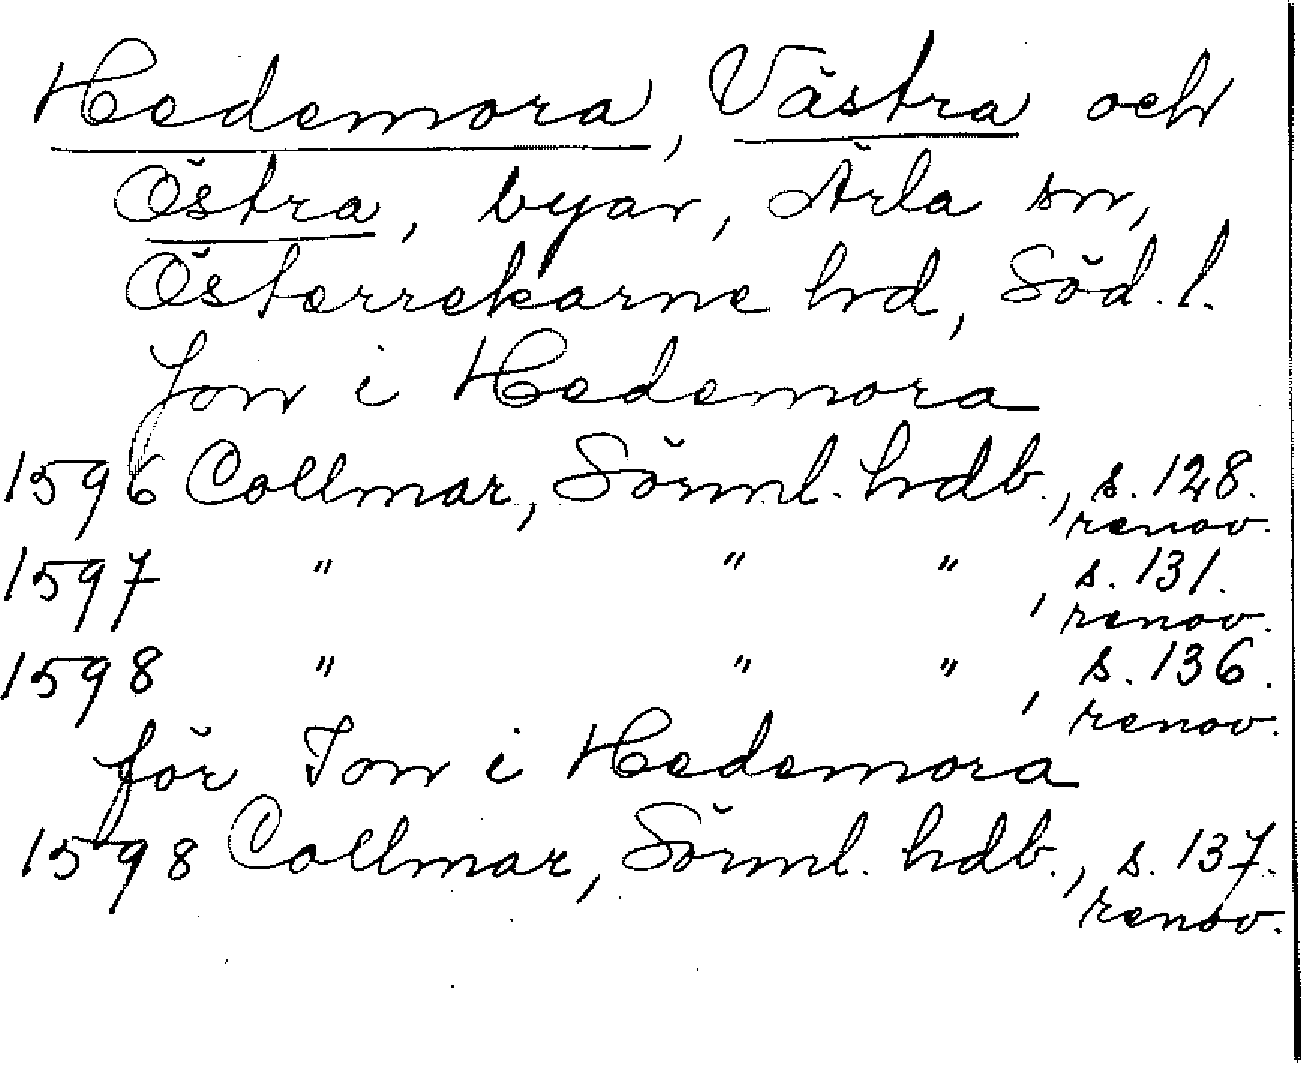 Hedemora, Västra och
Östra, byar, Ärla sn,
Österrekarne hrd, Söd. l.
Jon i Hedemora
1596 Collmar, Sörml. hdb., s. 128.
renov.
1597 " " " , s. 131.
renov.
1598 " " " , s. 136.
renov.
för Ion i Hedemora
1598 Collmar, Sörml. hdb., s. 137.
renov.